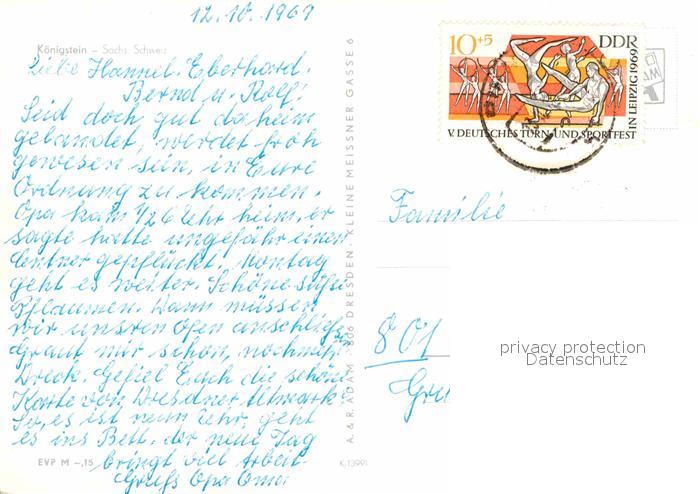 12.10.1969
Königstein – Sächs. Schweiz
Liebe Hannel. Eberhard.
Bernd u. Rolf!
Seid doch gut daheim
gelandet, werdet froh
gewesen sein, in Eure
Ordnung zu kommen.
Opa kam 1/2 6 Uhr heim, er
sagte hatte ungefähr einen
Centner gepflückt. Montag
geht es weiter. Schöne süße
Pflaumen. Dann müssen
wir unsren Ofen anschließen
Graut mir schon, nochmehr
Dreck. Gefiel Euch die schöne
Karte von Dresdner Altmarkt
So, es ist neun Uhr, geht
es ins Bett. der neue Tag
bringt viel Arbeit.
Gruß Opa Oma
EVP M –,15
K 13991
A. & R. ADAM · 806 DRESDEN · KLEINE MEISSNER GASSE 6
10+5 DDR
V. DEUTSCHES TURN- UND SPORTFEST
IN LEIPZIG 1969
Familie
801
privacy protection
Datenschutz